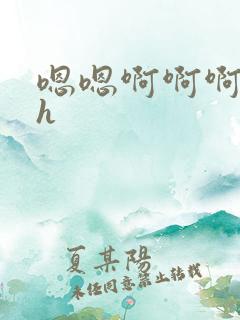 嗯嗯啊啊啊
h
夏某陽
未经同意禁止转载